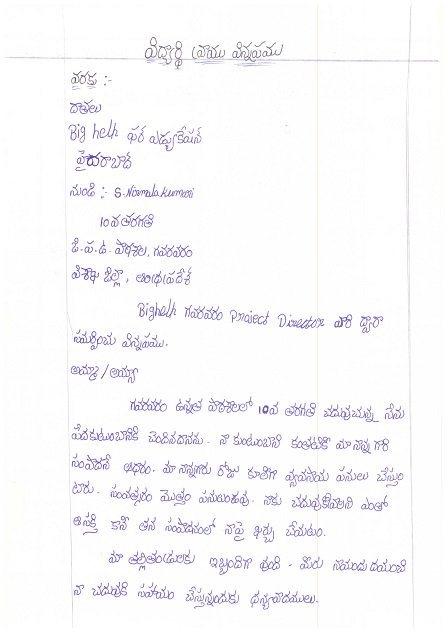 విద్యార్థి వ్రాయు విన్నపము
వరకు :-
దాతలు
Big help ఫర్ ఎడ్యుకేషన్
హైదరాబాద్
నుండి :- S. Nirmala kumari
10వ తరగతి
జి.ప.ఉ. పాఠశాల, గవరవరం
విశాఖ జిల్లా, ఆంధ్రప్రదేశ్
Bighelp గవరవరం Project Director వారి ద్వారా
సమర్పించు విన్నపము.
అమ్మా/అయ్యా
గవరవరం ఉన్నత పాఠశాలలో 10వ తరగతి చదువుచున్న నేను
పేదకుటుంబానికి చెందినదానను. నా కుటుంబానికంతటికీ మా నాన్న గారి
సంపాదనే ఆధారం. మా నాన్నగారు రోజు కూలీగా వ్యవసాయ పనులు చేస్తుం
టారు. సంవత్సరం మొత్తం పనులుండవు. నాకు చదువుకోవాలని ఎంతో
ఆసక్తి కానీ తన సంపాదనలో నాపై ఖర్చు చేయటం.
మా తల్లితండ్రులకు ఇబ్బందిగా ఉంది - మీరు నాయందు దయఉంచి
నా చదువుకి సహాయం చేస్తున్నందుకు ధన్యవాదములు.